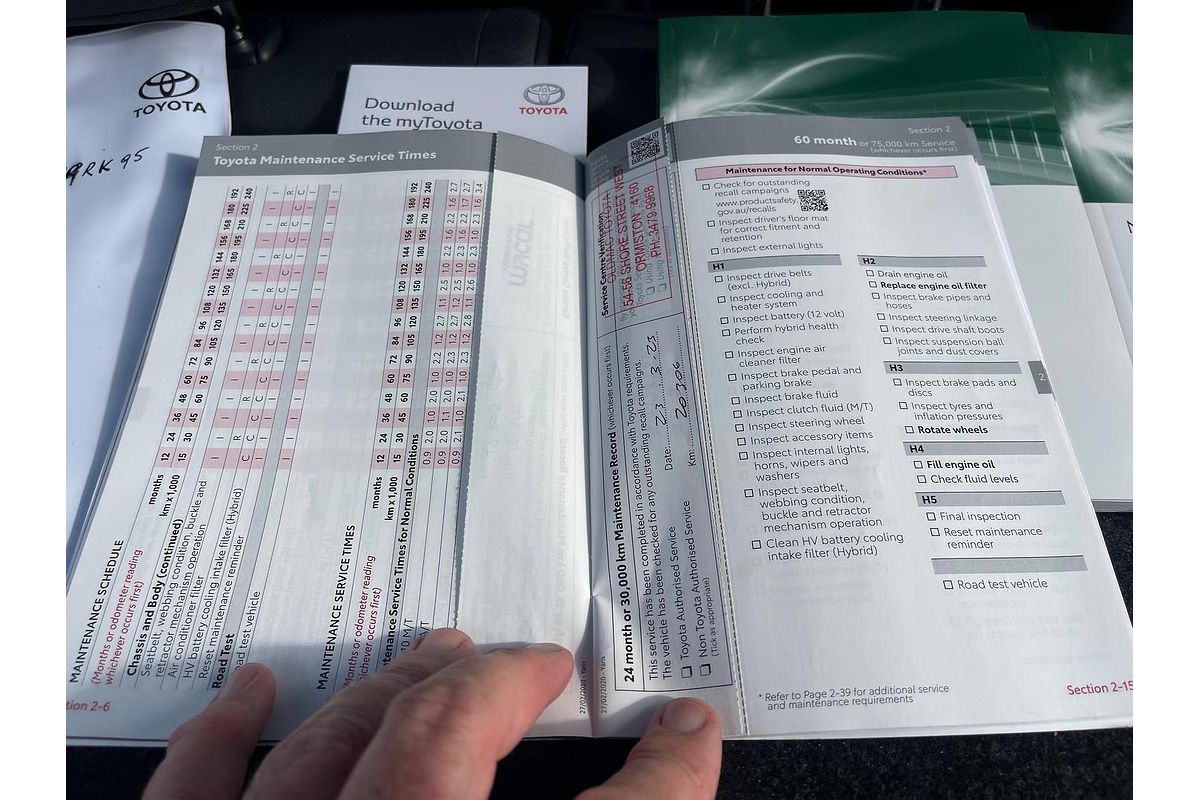 TOYOTA
Download
the myToyota
TOYOTA
Section 2
Toyota Maintenance Service Times
MAINTENANCE SCHEDULE
(Months or odometer reading
whichever occurs first)
months 12 24 36 48 60 72 84 96 108 120 132 144 156 168 180 192
km x 1,000 15 30 45 60 75 90 105 120 135 150 165 180 195 210 225 240
Chassis and Body (continued)
Seatbelt, webbing condition, buckle and
retractor mechanism operation
Air conditioner filter
HV battery cooling intake filter (Hybrid)
Reset maintenance reminder
Road Test
oad test vehicle
MAINTENANCE SERVICE TIMES
(Months or odometer reading
whichever occurs first)
months 12 24 36 48 60 72 84 96 108 120 132 144 156 168 180 192
km x 1,000 15 30 45 60 75 90 105 120 135 150 165 180 195 210 225 240
tenance Service Times for Normal Conditions
tion 2-6
27/02/2020 - Yaris
27/02/2020 - Yaris
24 month or 30,000 km Maintenance Record (whichever occurs first)
This service has been completed in accordance with Toyota requirements.
The vehicle has been checked for any outstanding recall campaigns.
Toyota Authorised Service
Non Toyota Authorised Service
(Tick as appropriate)
Date: 23 3 23
Km: 20306
Service Centre Verification
TOYOTA
54-56 SHORE STREET WEST
ORMISTON 4160
PH: 3479 9968
Section 2
60 month or 75,000 km Service
(whichever occurs first)
Maintenance for Normal Operating Conditions*
Check for outstanding
recall campaigns
www.productsafety.
gov.au/recalls
Inspect driver's floor mat
for correct fitment and
retention
Inspect external lights
H1
Inspect drive belts
(excl. Hybrid)
Inspect cooling and
heater system
Inspect battery (12 volt)
Perform hybrid health
check
Inspect engine air
cleaner filter
Inspect brake pedal and
parking brake
Inspect brake fluid
Inspect clutch fluid (M/T)
Inspect steering wheel
Inspect accessory items
Inspect internal lights,
horns, wipers and
washers
Inspect seatbelt,
webbing condition,
buckle and retractor
mechanism operation
Clean HV battery cooling
intake filter (Hybrid)
H2
Drain engine oil
Replace engine oil filter
Inspect brake pipes and
hoses
Inspect steering linkage
Inspect drive shaft boots
Inspect suspension ball
joints and dust covers
H3
Inspect brake pads and
discs
Inspect tyres and
inflation pressures
Rotate wheels
H4
Fill engine oil
Check fluid levels
H5
Final inspection
Reset maintenance
reminder
Road test vehicle
2
* Refer to Page 2-39 for additional service
and maintenance requirements
Section 2-15